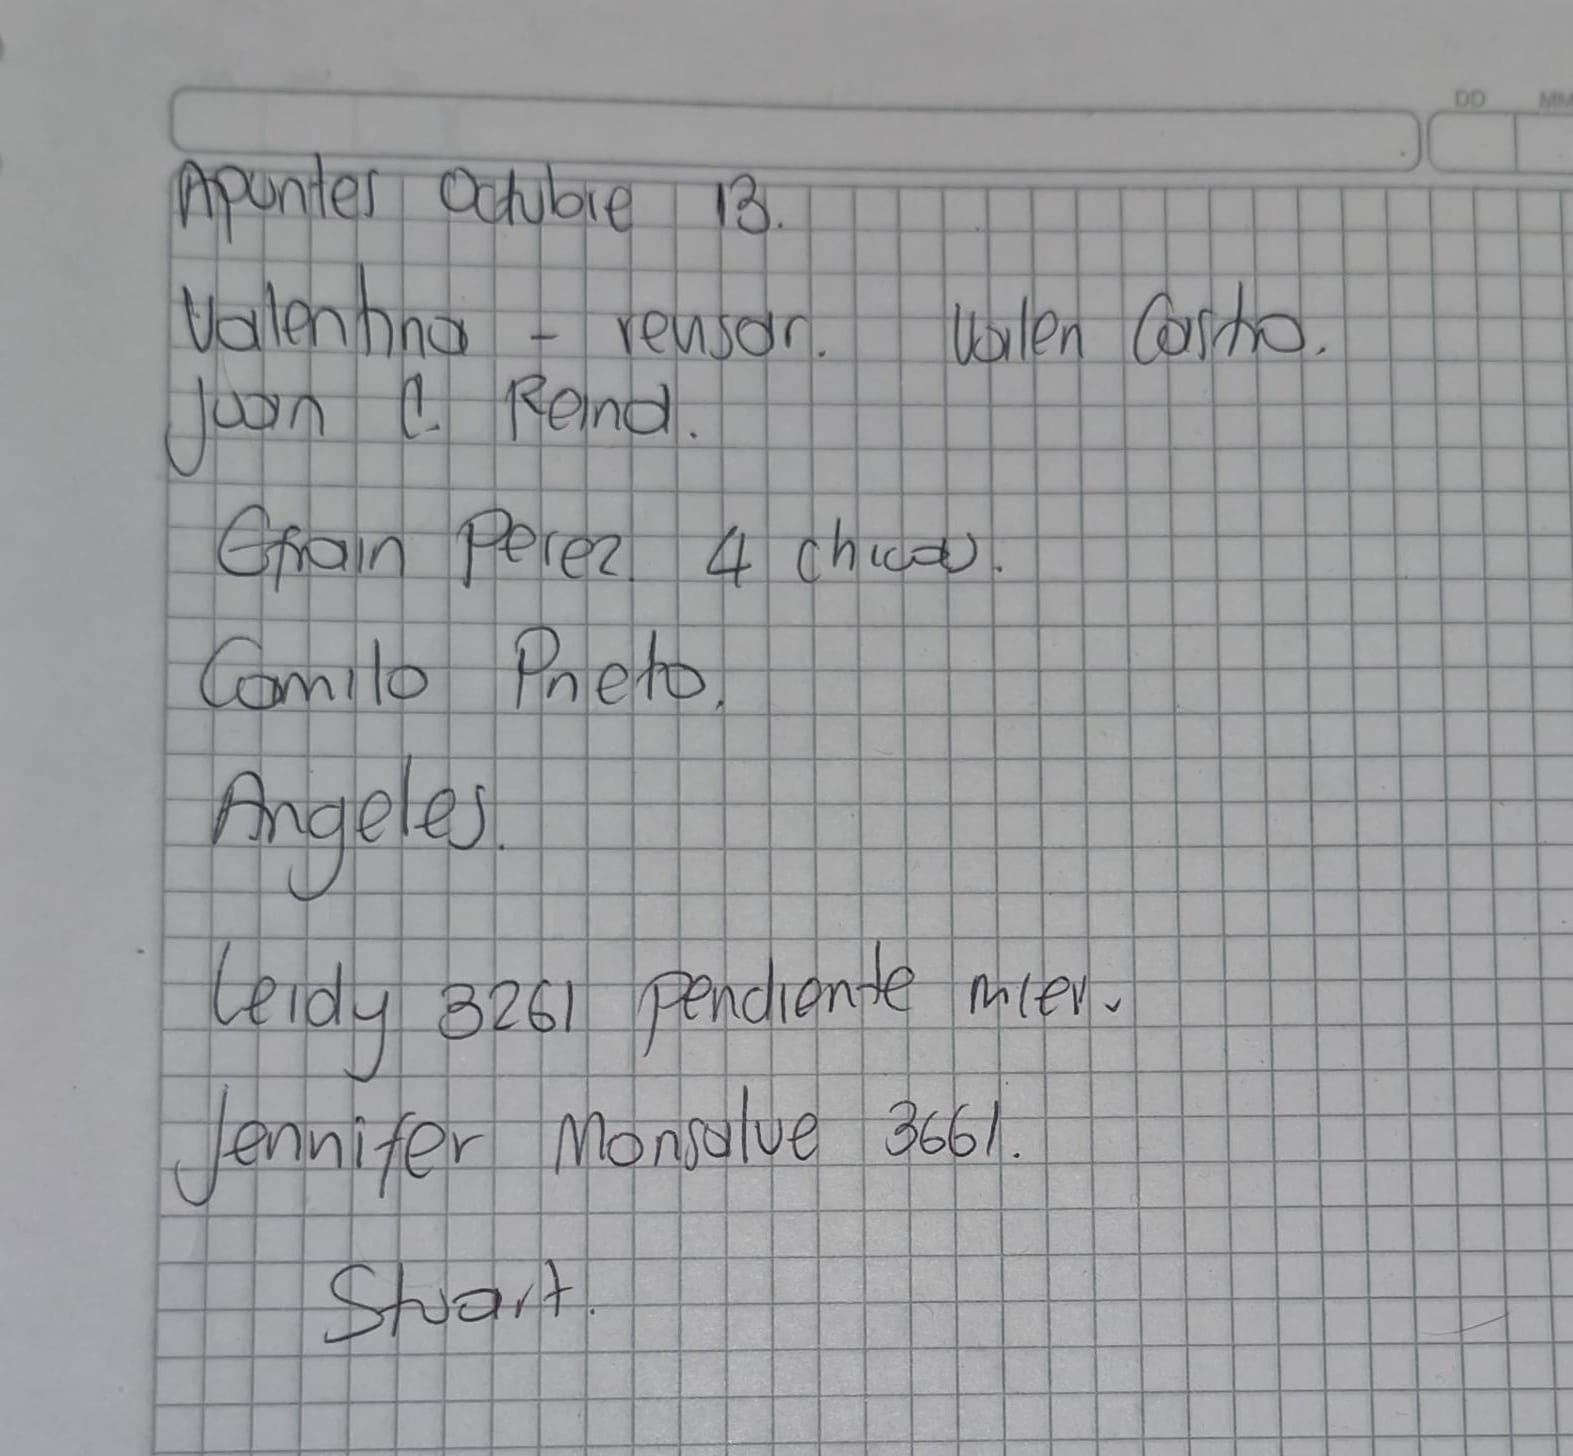 DD MM
Apuntes Octubre 13.
Valentina - revisar. Valen Castro.
Juan C. Rend.
Efrain Perez 4 chicas.
Camilo Prieto.
Angeles.
Leidy 3261 pendiente mier.
Jennifer Monsalve 3661.
Stuart.